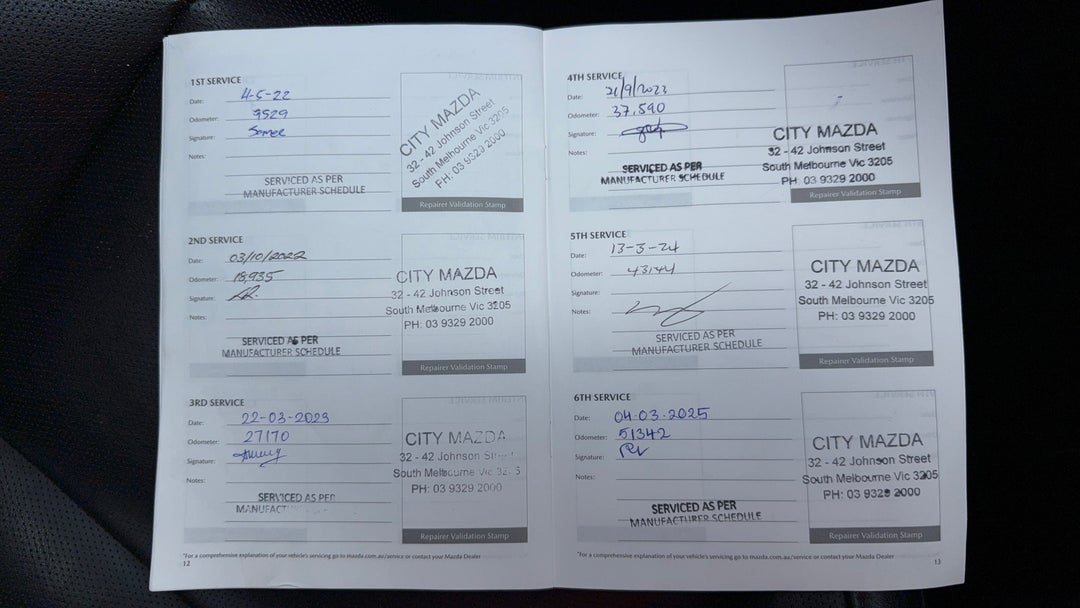 1ST SERVICE
Date: 4-5-22
Odometer: 9529
Signature:
Notes:
SERVICED AS PER
MANUFACTURER SCHEDULE
CITY MAZDA
32 - 42 Johnson Street
South Melbourne Vic 3205
PH: 03 9329 2000
Repairer Validation Stamp
2ND SERVICE
Date: 03/10/2022
Odometer: 18,935
Signature:
Notes:
SERVICED AS PER
MANUFACTURER SCHEDULE
CITY MAZDA
32 - 42 Johnson Street
South Melbourne Vic 3205
PH: 03 9329 2000
Repairer Validation Stamp
3RD SERVICE
Date: 22-03-2023
Odometer: 27170
Signature:
Notes:
SERVICED AS PER
MANUFACT
CITY MAZDA
32 - 42 Johnson
South Melbourne Vic
PH: 03 9329 2000
Repairer Validation Stamp
*For a comprehensive explanation of your vehicle's servicing go to mazda.com.au/service or contact your Mazda Dealer
12
4TH SERVICE
Date: 21/9/2023
Odometer: 37,590
Signature:
Notes:
SERVICED AS PER
MANUFACTURER SCHEDULE
CITY MAZDA
32 - 42 Johnson Street
South Melbourne Vic 3205
PH 03 9329 2000
Repairer Validation Stamp
5TH SERVICE
Date: 13-3-24
Odometer: 43144
Signature:
Notes:
SERVICED AS PER
MANUFACTURER SCHEDULE
CITY MAZDA
32 - 42 Johnson Street
South Melbourne Vic 3205
PH: 03 9329 2000
Repairer Validation Stamp
6TH SERVICE
Date: 04-03-2025
Odometer: 51342
Signature:
Notes:
SERVICED AS PER
MANUFACTURER SCHEDULE
CITY MAZDA
32 - 42 Johnson Street
South Melbourne Vic 3205
PH: 03 9329 2000
Repairer Validation Stamp
*For a comprehensive explanation of your vehicle's servicing go to mazda.com.au/service or contact your Mazda Dealer
13